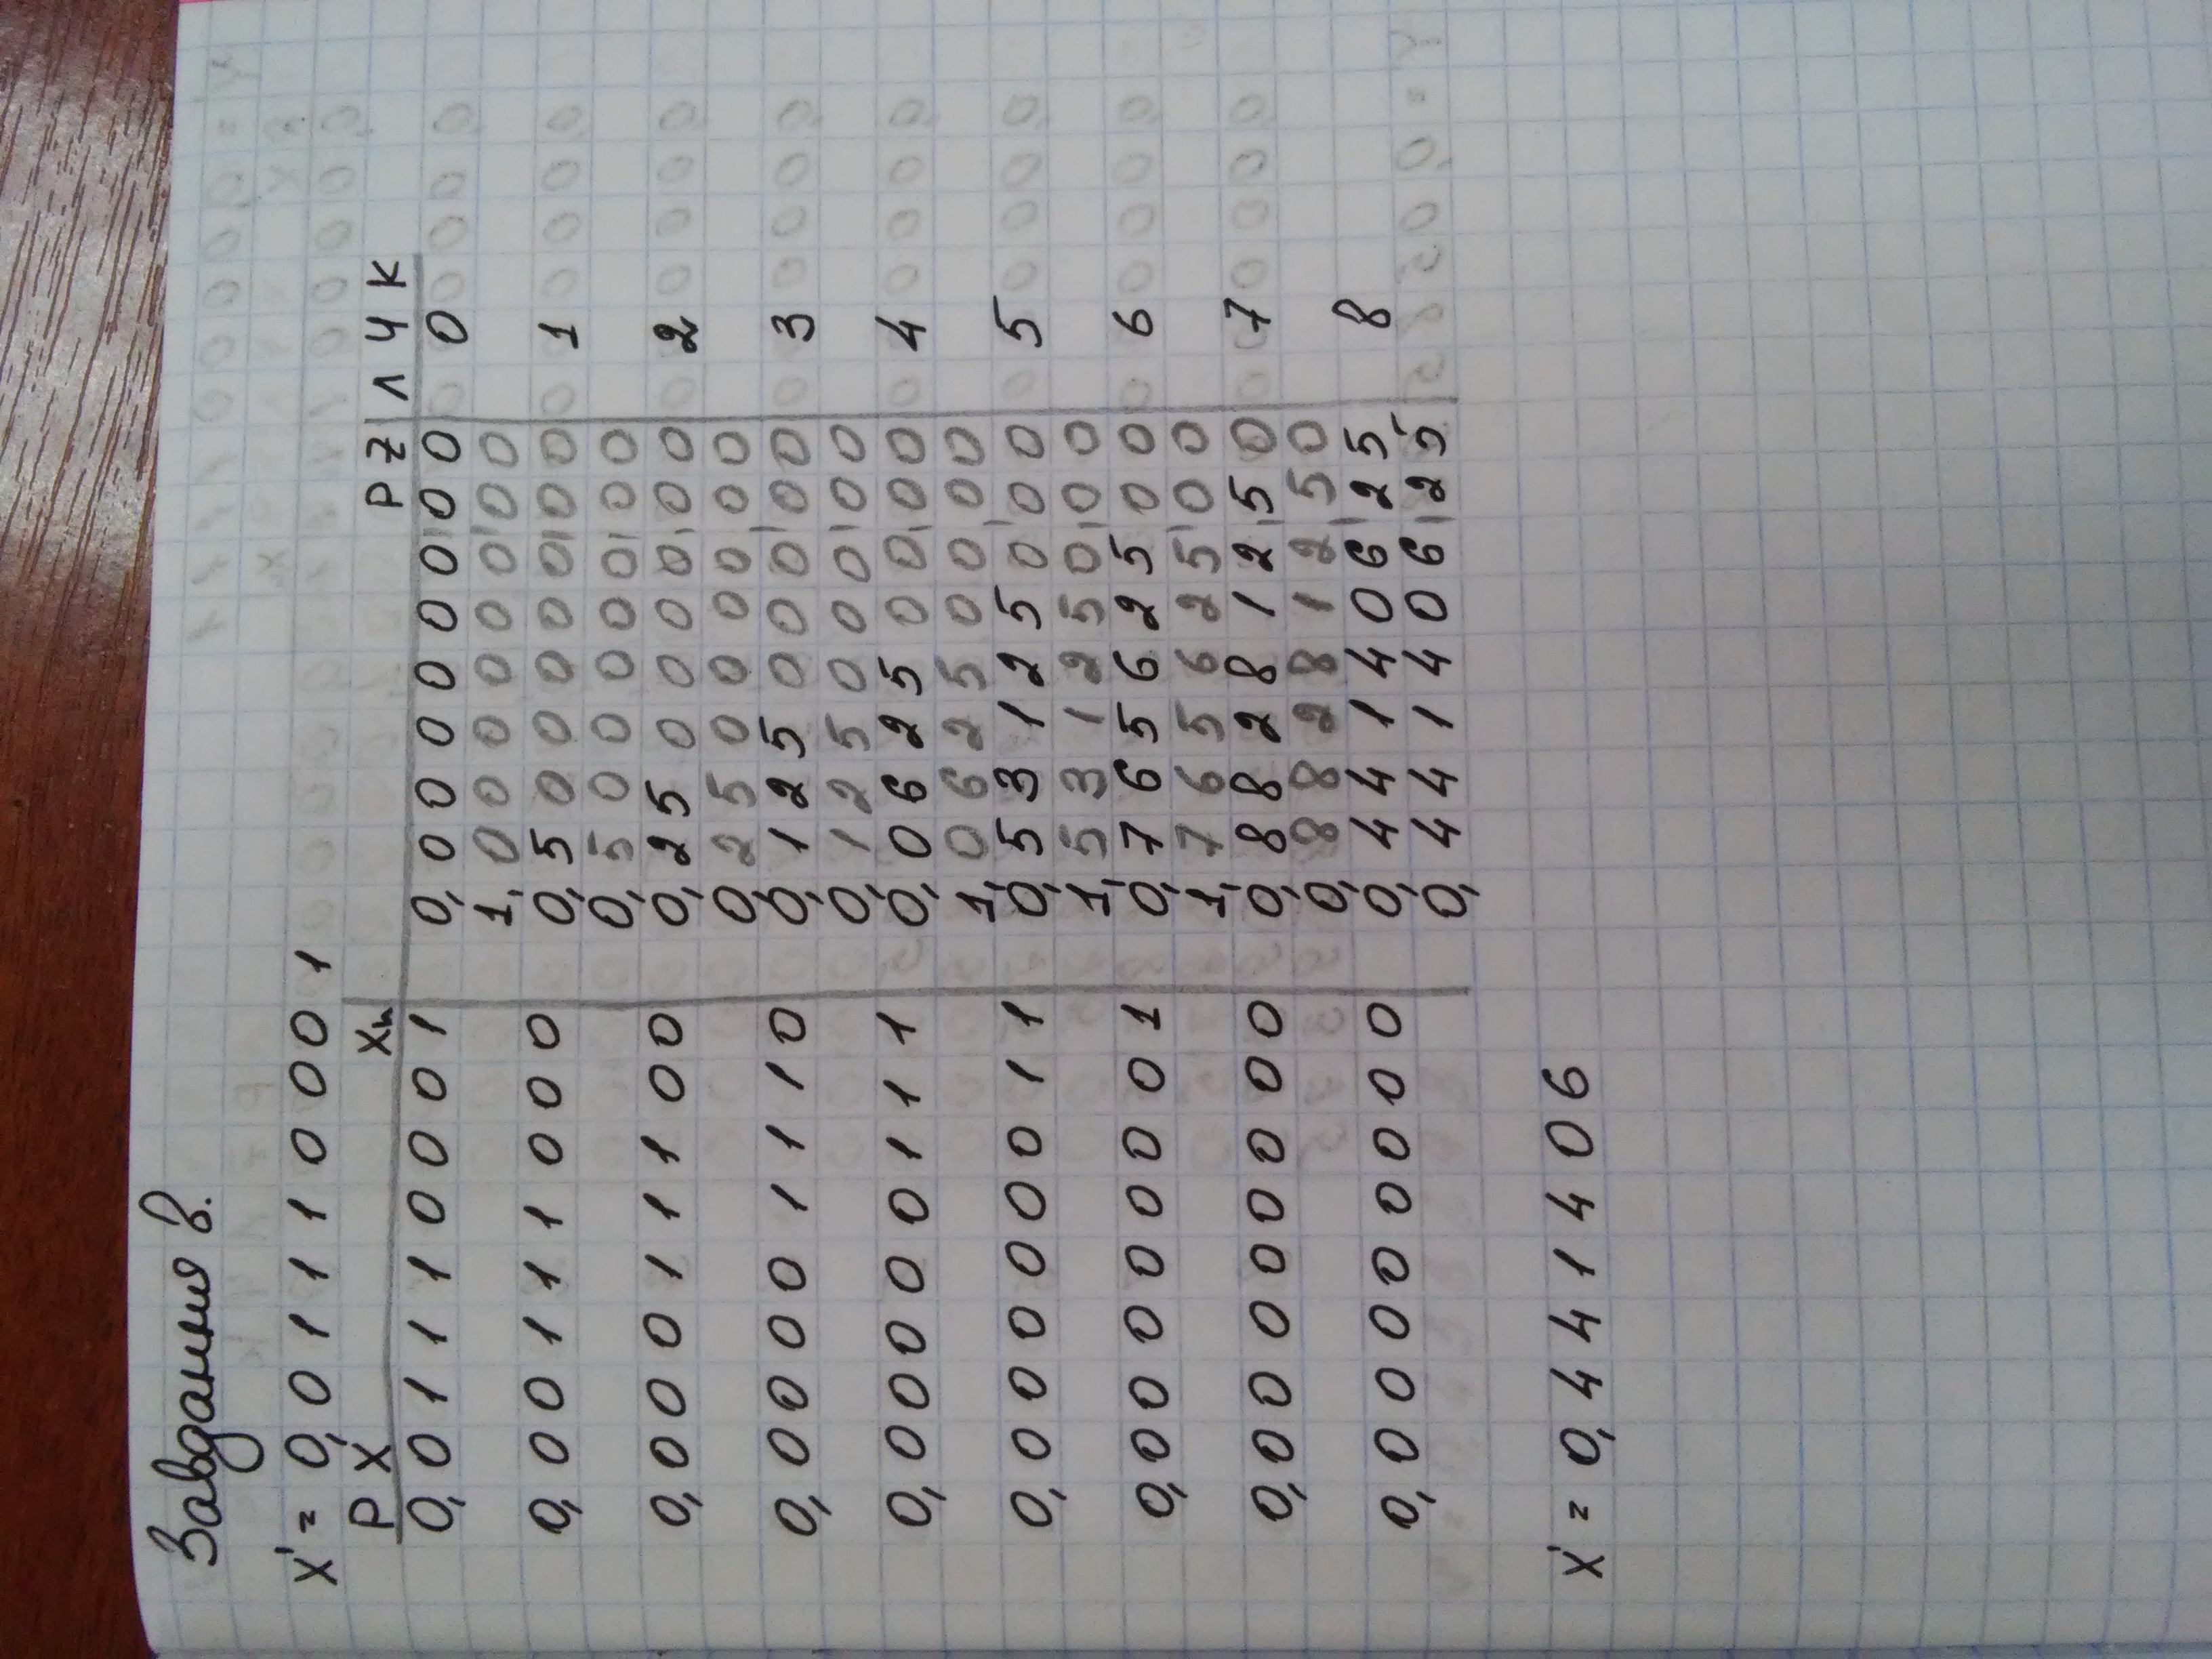 Завдання в.
X' = 0,01110001
PX Xn PZ ЛЧК
0,01110001 0,00000000 0
1,00000000
0,00111000 0,50000000 1
0,50000000
0,00011100 0,25000000 2
0,25000000
0,00001110 0,12500000 3
0,12500000
0,00000111 0,06250000 4
1,06250000
0,00000011 0,53125000 5
1,53125000
0,00000001 0,76562500 6
1,76562500
0,00000000 0,88281250 7
0,88281250
0,00000000 0,44140625 8
0,44140625
X' = 0,441406